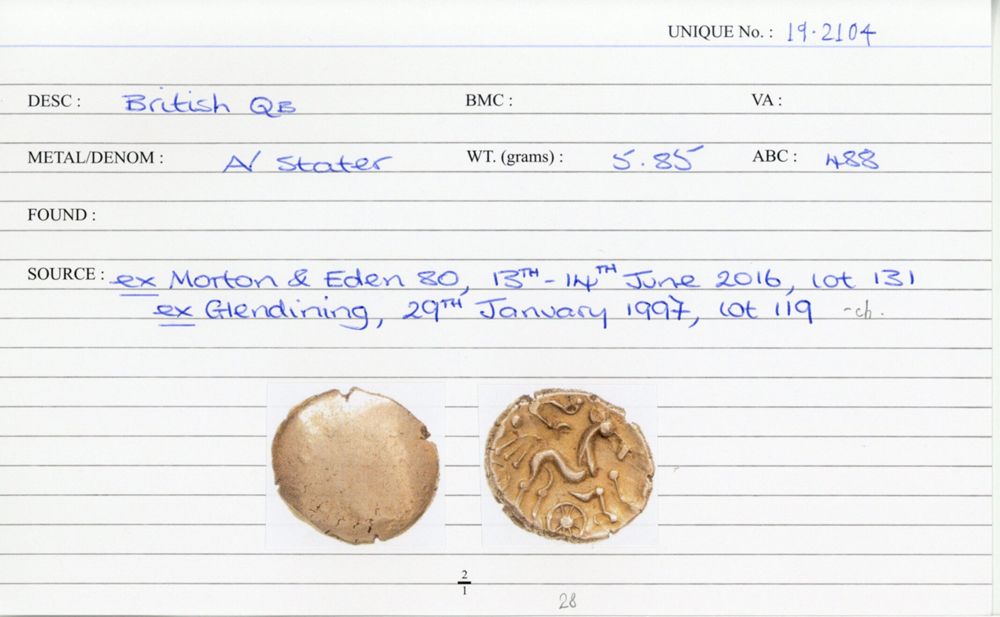 UNIQUE No. : 19.2104
DESC : British QB BMC : VA :
METAL/DENOM : AV Stater WT. (grams) : 5.85 ABC : 488
FOUND :
SOURCE : ex Morton & Eden 80, 13TH - 14TH June 2016, lot 131
ex Glendining, 29TH January 1997, lot 119 -ch.
2
1
28